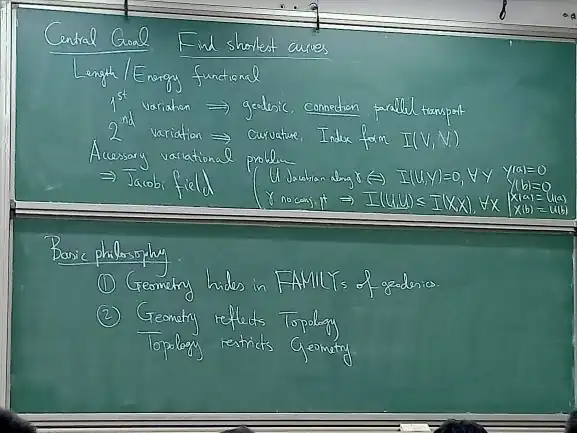 Central Goal Find shortest curves
Length/Energy functional
1st variation ⇒ geodesic, connection, parallel transport
2nd variation ⇒ curvature, Index form I(V,V)
Accessary variational problem
⇒ Jacobi field
( U Jacobian along γ ⇔ I(U,Y)=0, ∀Y Y(a)=0
Y(b)=0
γ no conj. pt ⇒ I(U,U) ≤ I(X,X), ∀X X(a)=U(a)
X(b)=U(b)
Basic philosophy
① Geometry hides in FAMILYs of geodesics.
② Geometry reflects Topology
Topology restricts Geometry